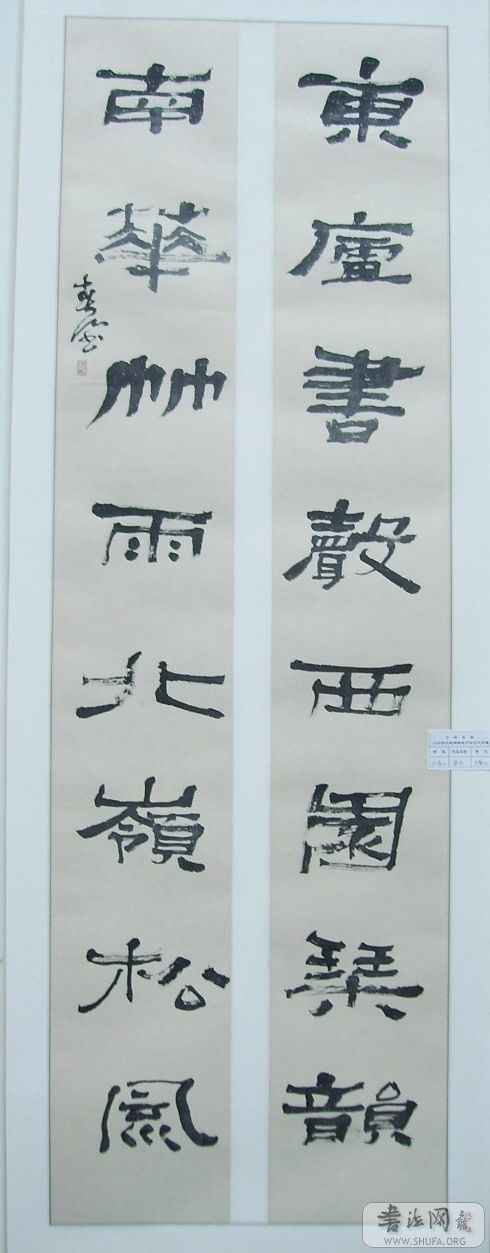 東廬書聲西園琴韻
南華艸雨北嶺松風
書法网
WWW.SHUFA.ORG